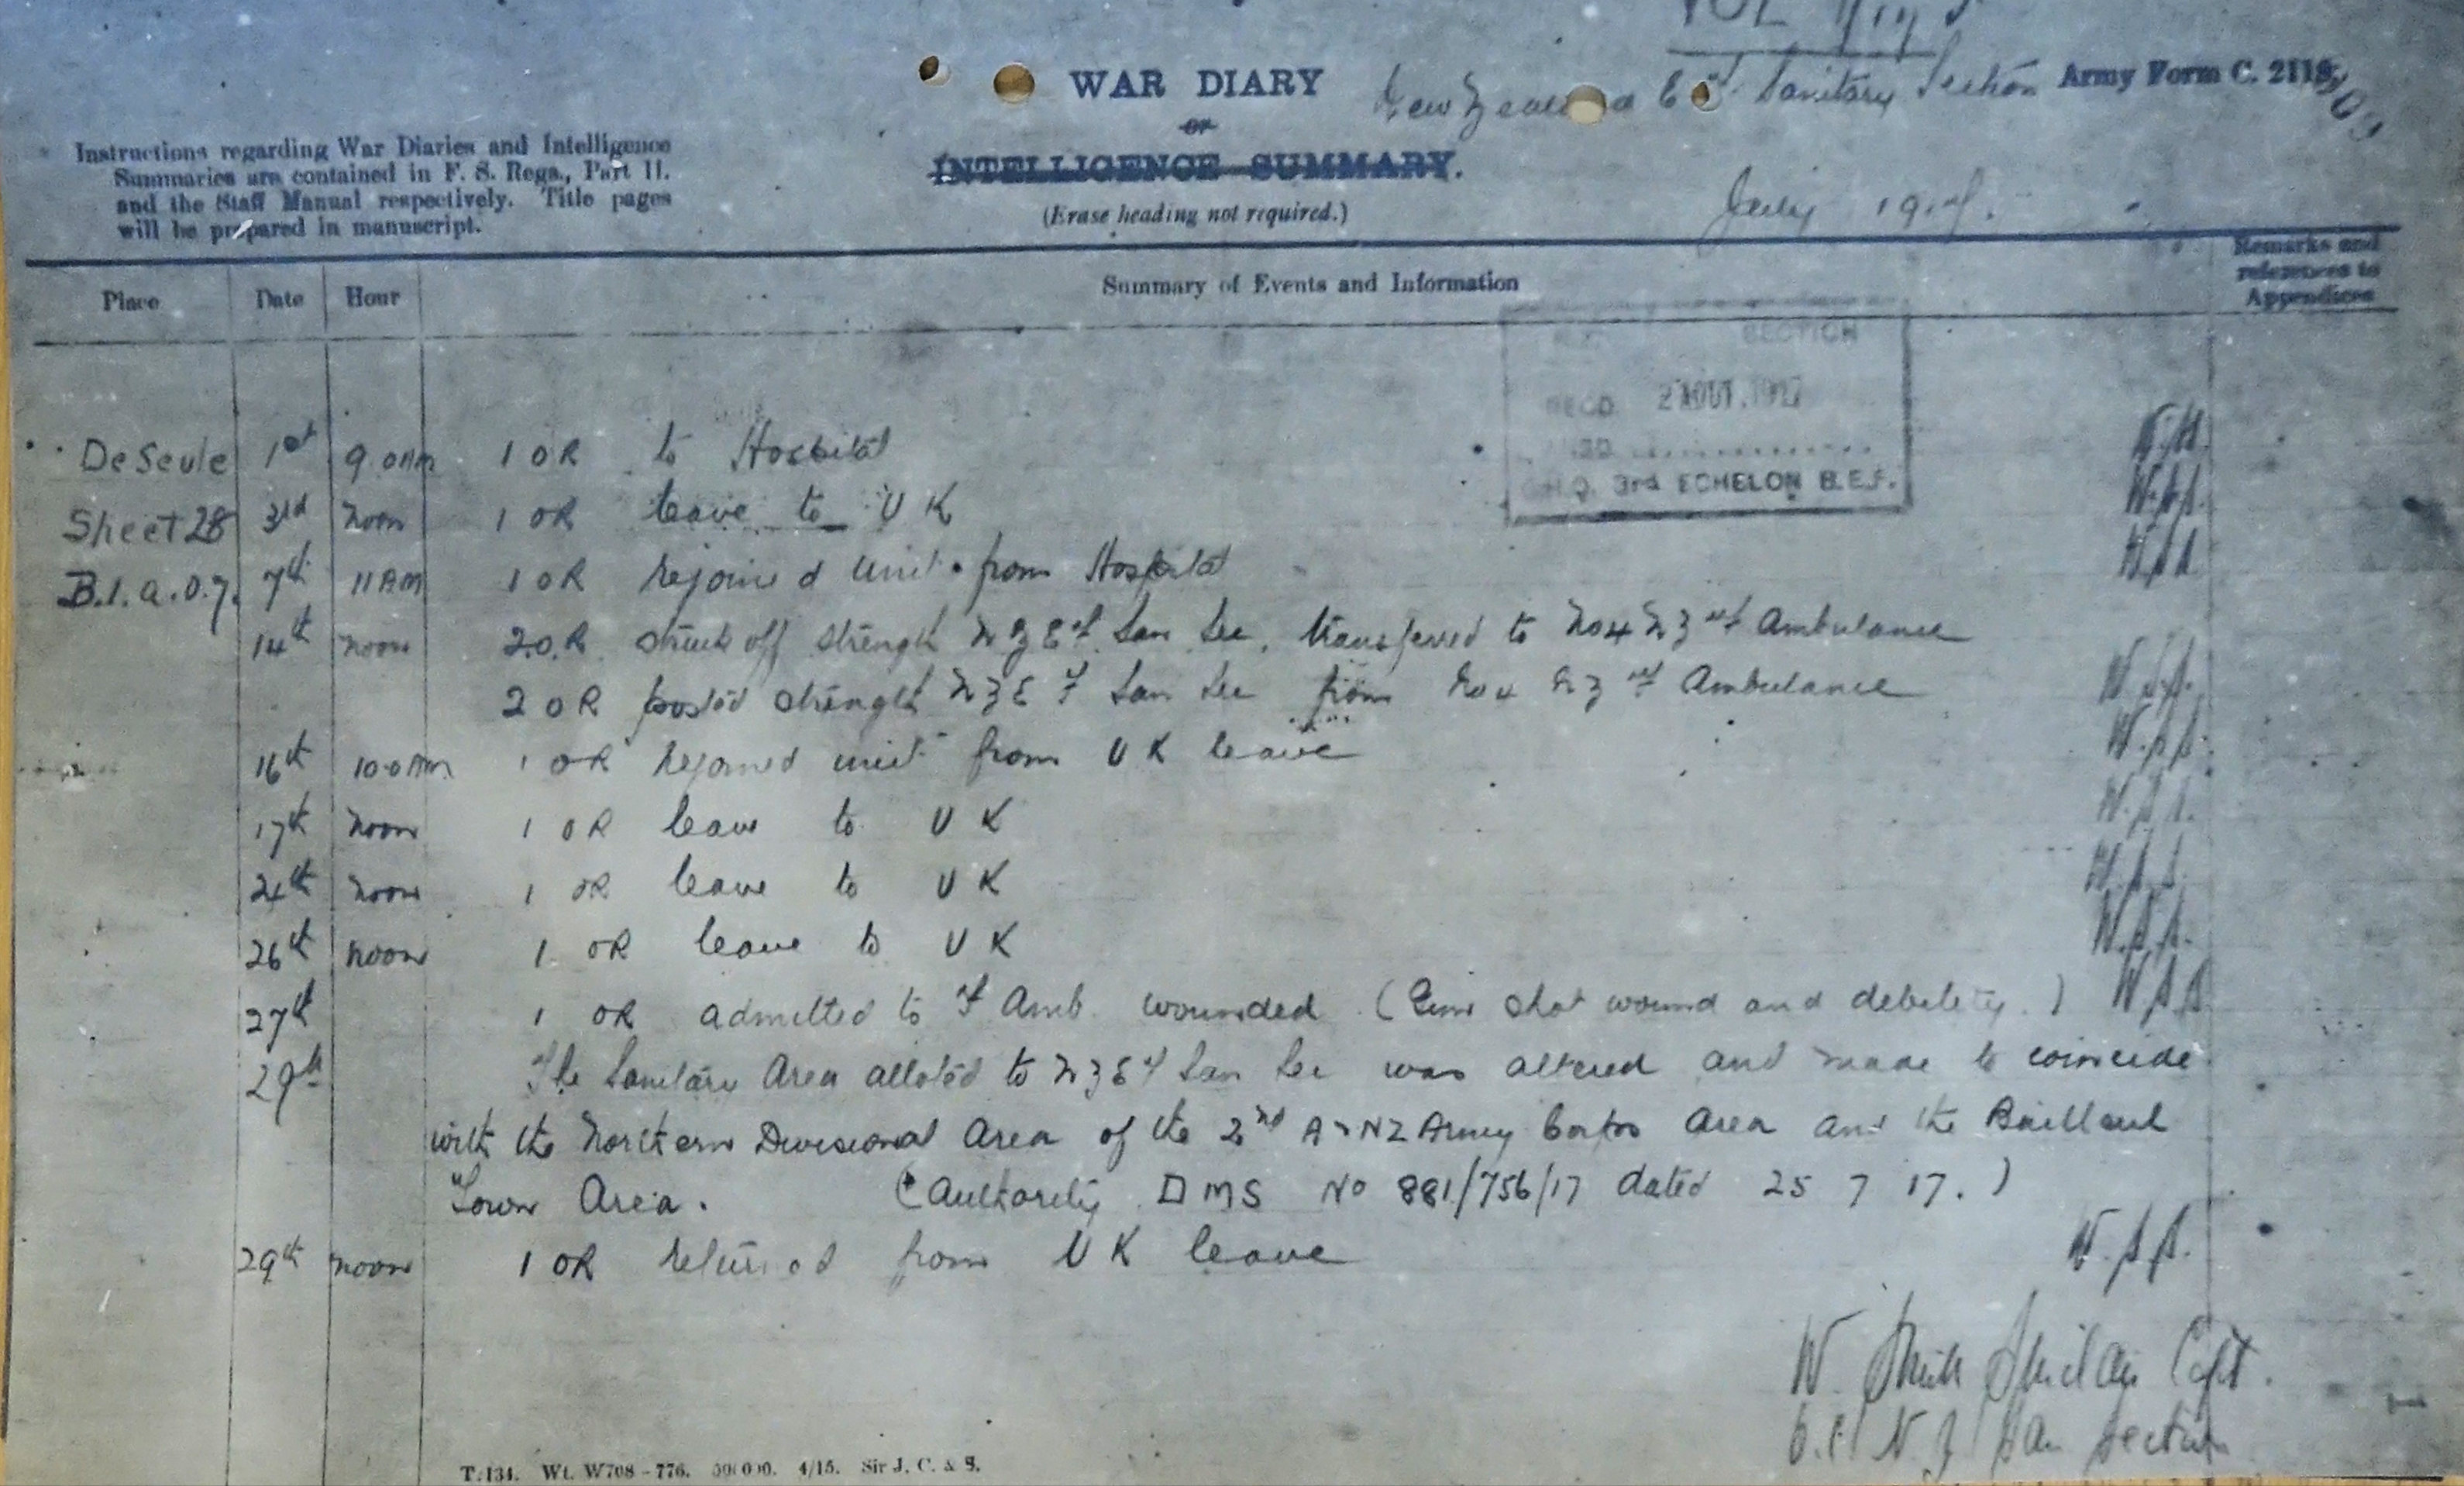 WAR DIARY
or
INTELLIGENCE SUMMARY.
(Erase heading not required.)
Sanitary Section
Army Form C. 2118.
July 1917.
Instructions regarding War Diaries and Intelligence
Summaries are contained in F. S. Regs., Part II.
and the Staff Manual respectively. Title pages
will be prepared in manuscript.
Place Date Hour Summary of Events and Information
Remarks and
references to
Appendices
SECTION
RECD 2 AOUT. 1917
3rd ECHELON B.E.F.
De Seule 1st 9.0AM 1 OR to Hospital
Sheet 28 3rd noon 1 OR leave to UK W.S.S.
B.1.a.0.7. 7th 11AM 1 OR rejoined unit from Hospital W.S.S.
14th noon 2.O.R. struck off strength N Z San Sec, transferred to No 4 N Z Ambulance
2 OR posted strength N Z San Sec from No 4 N Z Ambulance W.S.S.
16th 10.0AM 1 OR rejoined unit from UK leave W.S.S.
17th noon 1 OR leave to UK W.S.S.
24th noon 1 OR leave to UK W.S.S.
26th noon 1 OR leave to UK W.S.S.
27th 1 OR admitted to Amb. wounded (Gun shot wound and debility.) W.S.S.
29th The Sanitary Area alloted to N Z San Sec was altered and made to coincide
with the Northern Divisional Area of the 2nd A & NZ Army Corps Area and the Bailleul
Town Area. (Authority DMS No 881/756/17 dated 25 7 17.)
29th noon 1 OR returned from UK leave W.S.S.
W. Capt.
N Z San Section
T.134. Wt. W708–776. 500000. 4/15. Sir J. C. & S.